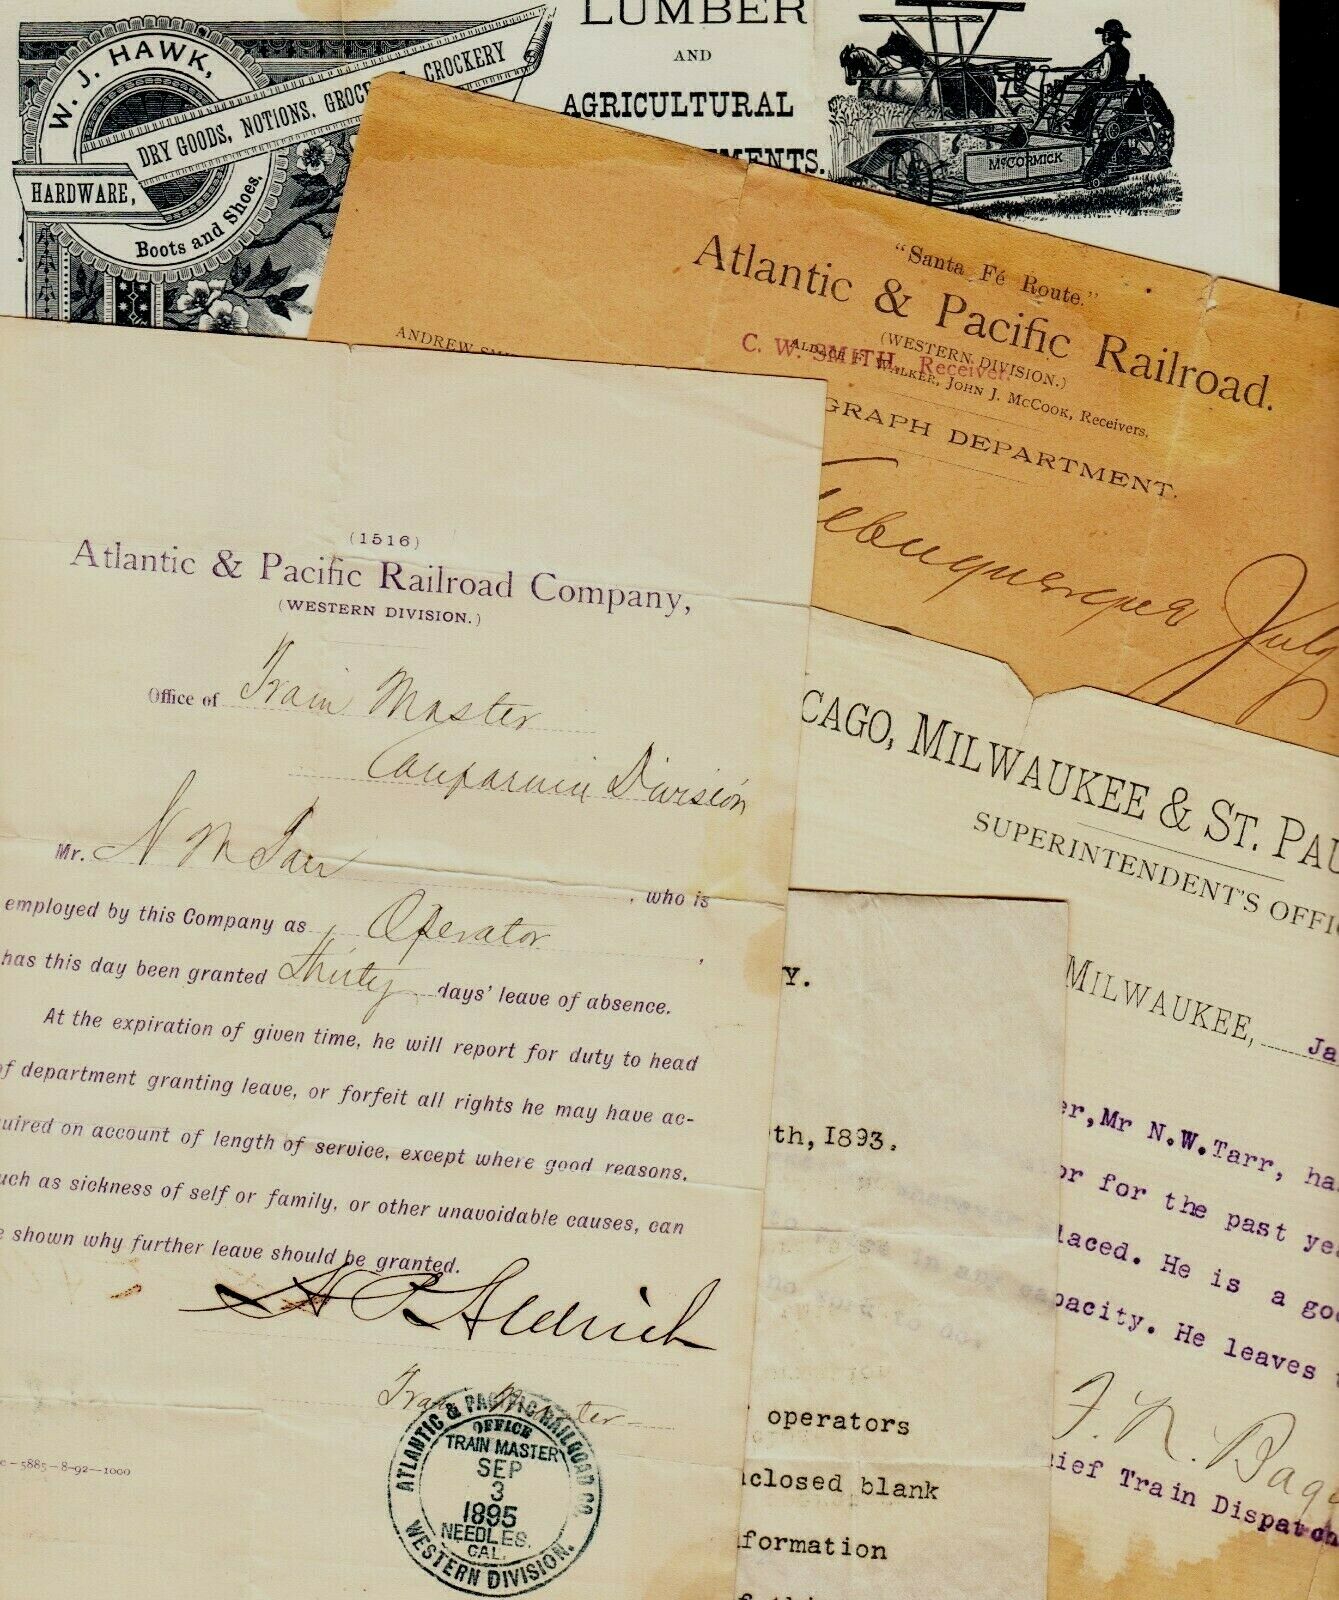 W. J. HAWK,
DRY GOODS, NOTIONS, CROCKERY
HARDWARE,
Boots and Shoes.
LUMBER
AND
AGRICULTURAL
MENTS.
McCORMICK
"Santa Fé Route."
Atlantic & Pacific Railroad.
(WESTERN DIVISION.)
C. W. SMITH, Receiver.
WALKER, JOHN J. McCOOK, Receivers.
ANDREW
GRAPH DEPARTMENT.
July
(1516)
Atlantic & Pacific Railroad Company,
(WESTERN DIVISION.)
Office of Train Master
Division
Mr. N M Tarr, who is
employed by this Company as Operator,
has this day been granted thirty days' leave of absence.
At the expiration of given time, he will report for duty to head
of department granting leave, or forfeit all rights he may have ac-
uired on account of length of service, except where good reasons.
uch as sickness of self or family, or other unavoidable causes, can
e shown why further leave should be granted.
Aldrich
Train Master
ATLANTIC & PACIFIC RAILROAD CO.
OFFICE
TRAIN MASTER
SEP
3
1895
NEEDLES.
CAL.
WESTERN DIVISION.
5885-8-92-1000
CAGO, MILWAUKEE & ST. PAU
SUPERINTENDENT'S OFFI
MILWAUKEE, Ja
er, Mr N.W.Tarr, ha
or for the past ye
laced. He is a goo
pacity. He leaves
hief Train Dispatch
Y.
th, 1893.
in any
operators
closed blank
formation